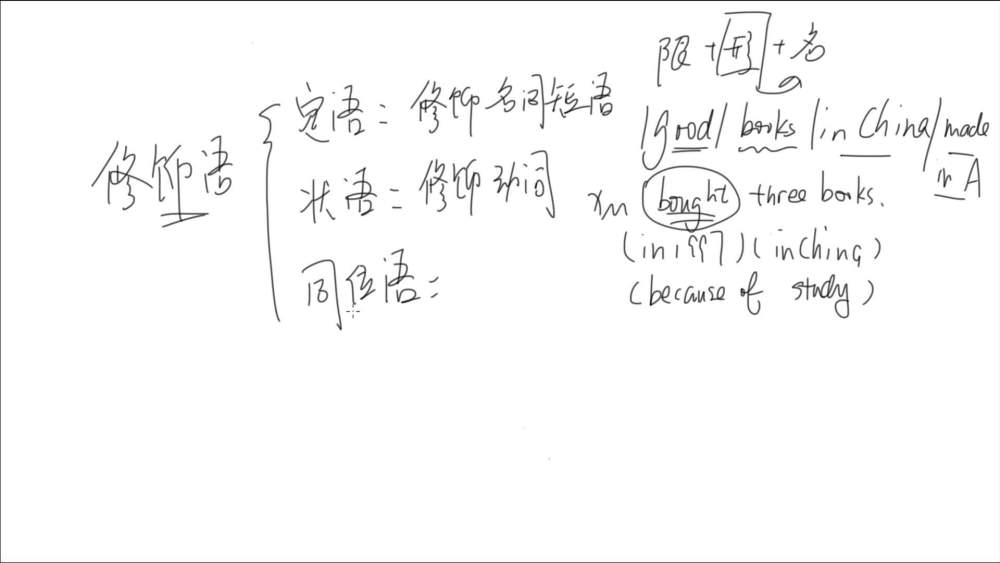 限+形+名
修饰语
定语：修饰名词短语
/good/ books /in China/ made in A
状语：修饰动词
xm bought three books.
(in 1997) (in China)
(because of study)
同位语：